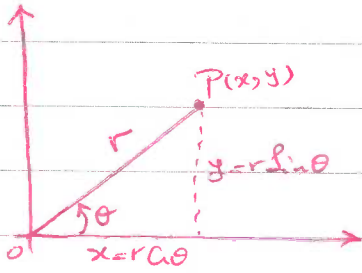 P(x,y)
r
y=r Sinθ
θ
o
x=r Cosθ